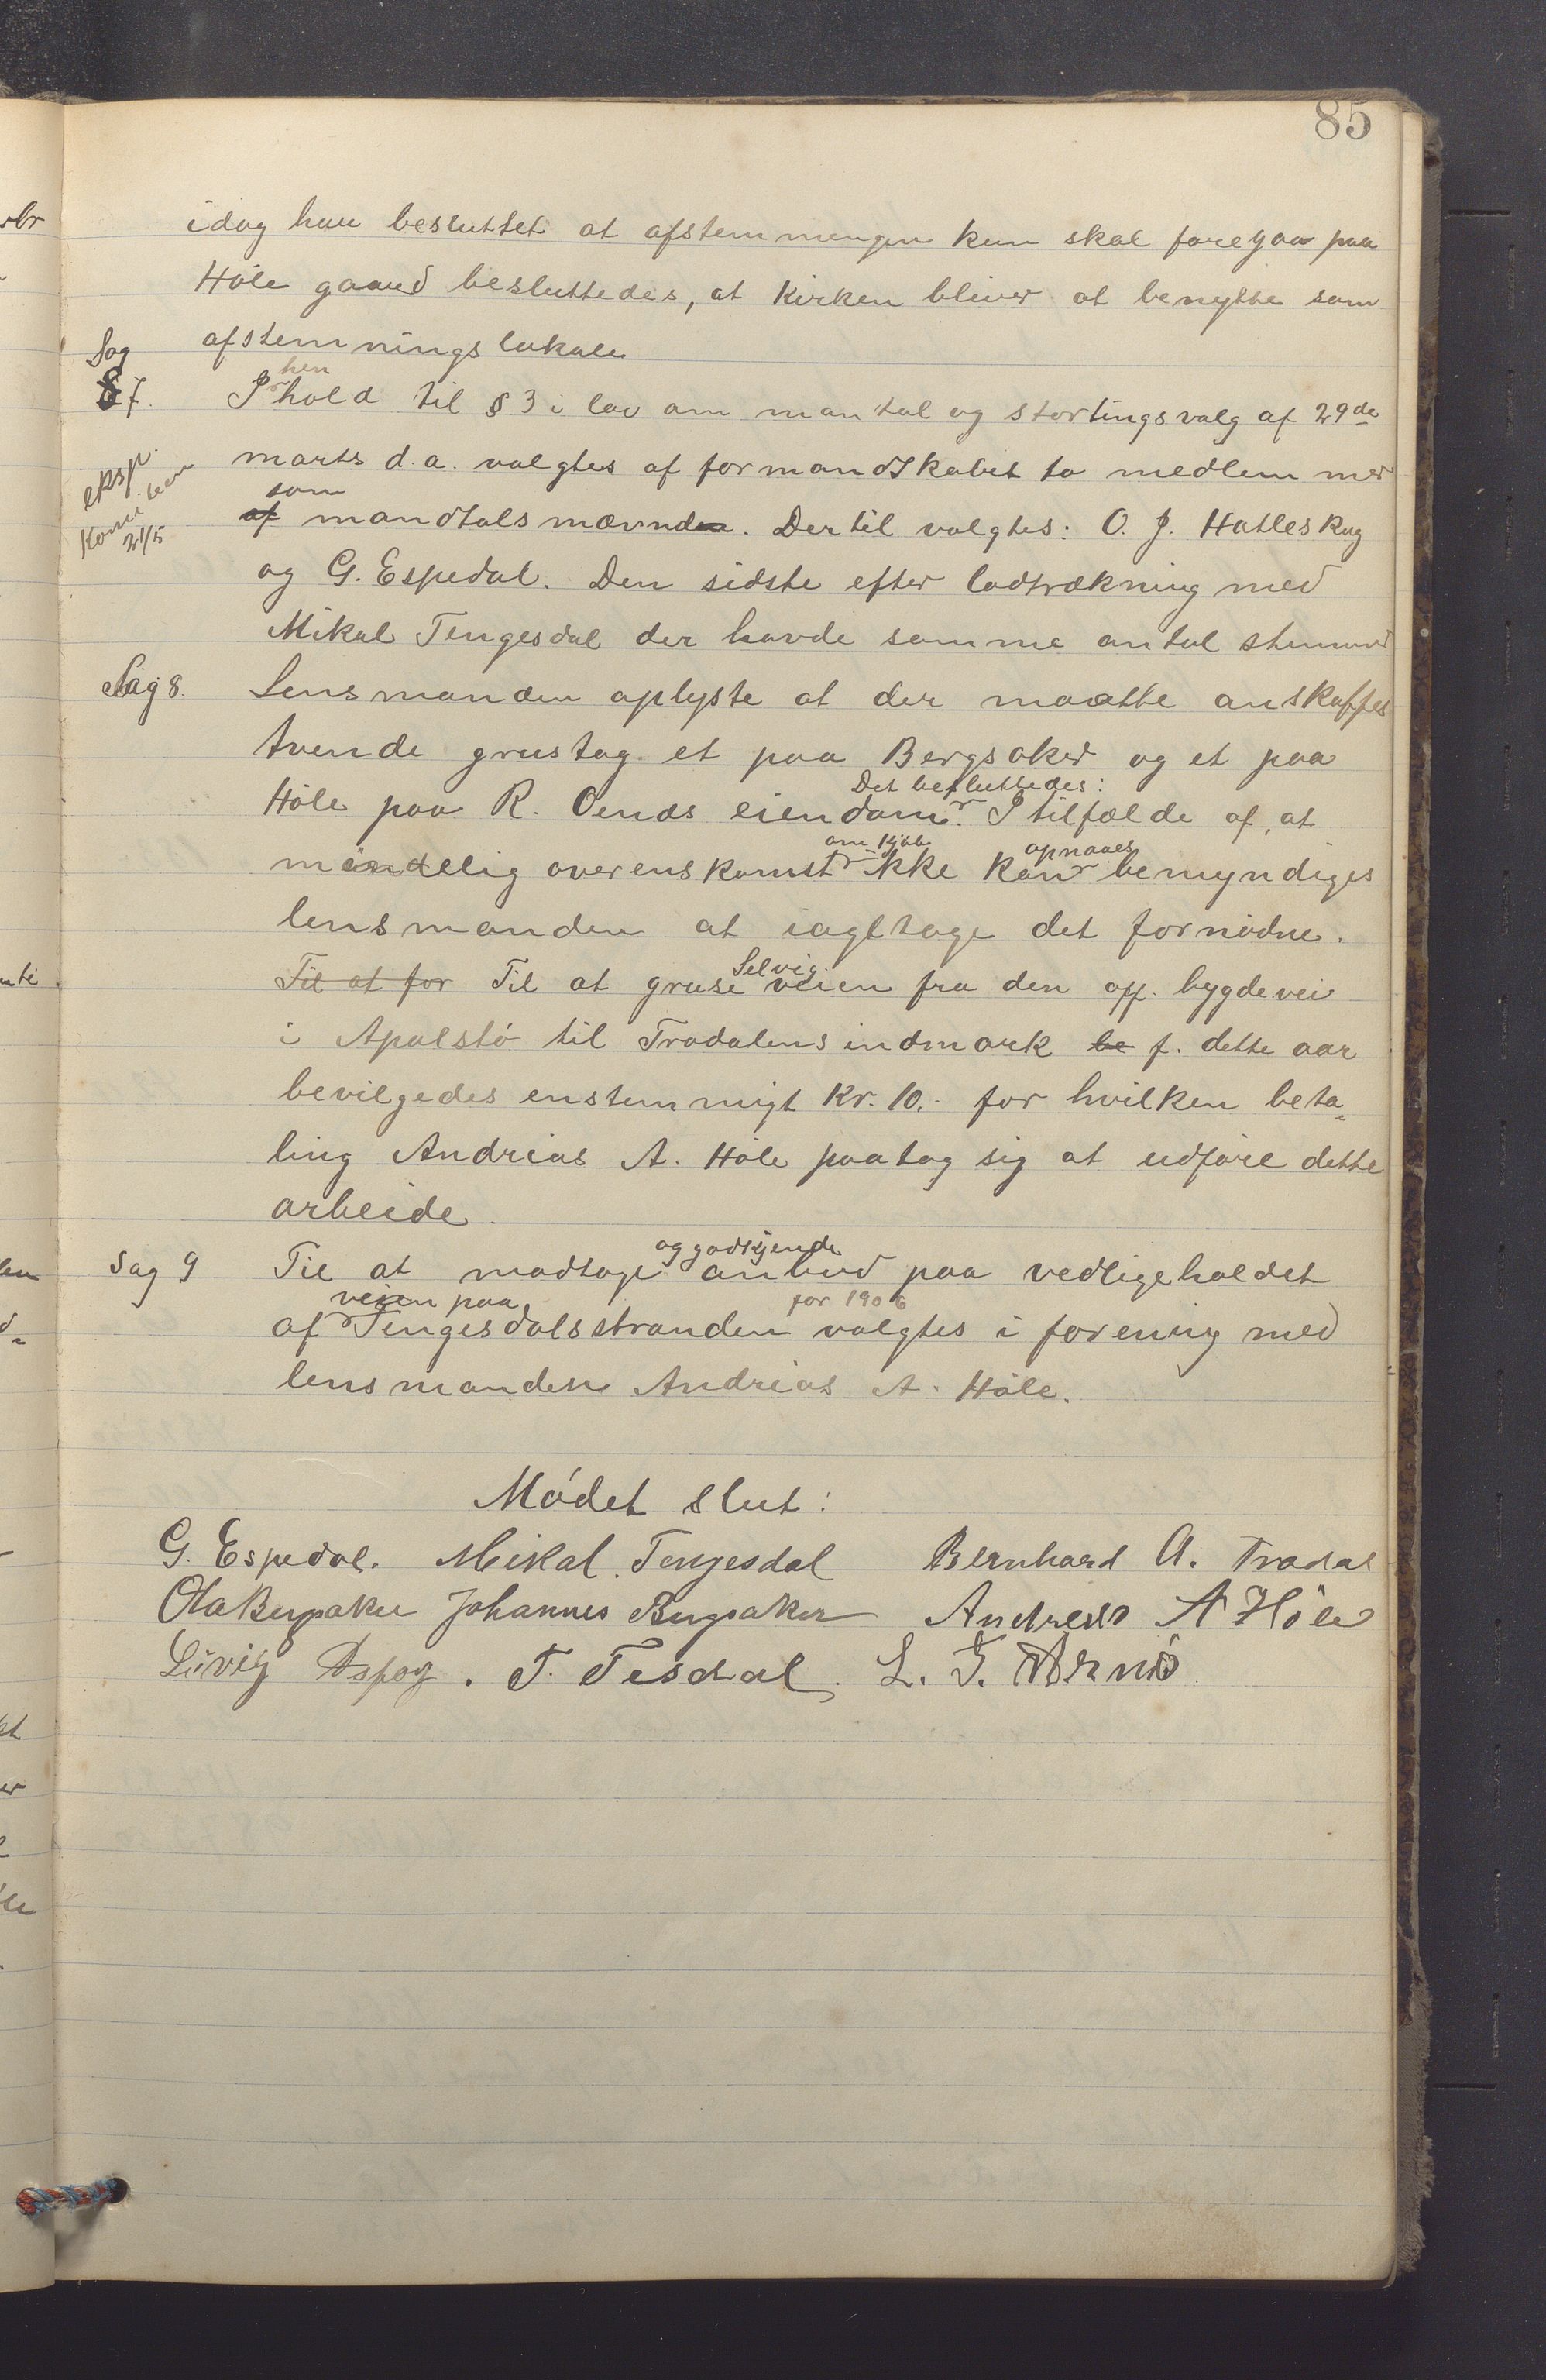 85
idag have besluttet at afstemningen kun skal foregaa paa
Höle gaard besluttedes, at Kirken bliver at benytte som
afstemningslokale
Sag
7.
I henhold til § 3 i lov om mantal og stortingsvalg af 29de
marts d.a. valgtes af formandskabet to medlemmer
eksp.
21/5
af som mandtalsmævnd. Dertil valgtes: O. J. Hatleskog
og G. Espedal. Den sidste efter lodtrækning med
Mikal Tengesdal der havde samme antal stemmer
Sag 8.
Lensmanden oplyste at der maatte anskaffes
tvende grustag et paa Bergsaker og et paa
Höle paa R. Oends eiendom. Det besluttedes: I tilfælde af, at
mindelig overenskomst om kjöb ikke kan opnaaes bemyndiges
lensmanden at iagttage det fornödne.
Til at for Til at gruse Selvig veien fra den off. bygdevei
i Apalstö til Tradalens indmark be f. dette aar
bevilgedes enstemmigt Kr. 10.- for hvilken beta-
ling Andreas A. Höle paatog sig at udföre dette
arbeide.
Sag 9
Til at modtage og godkjende anbud paa vedligeholdet
af veien paa Tengesdalsstranden for 1906 valgtes i forening med
lensmanden Andreas A. Höle.
Mödet slut:
G. Espedal. Mikal Tengesdal Bernhard A. Tradal
Ola Bergsaker Johannes Bergsaker Andreas A Höle
Sivig Aspöy. T. Tesdal. L. T. Armö